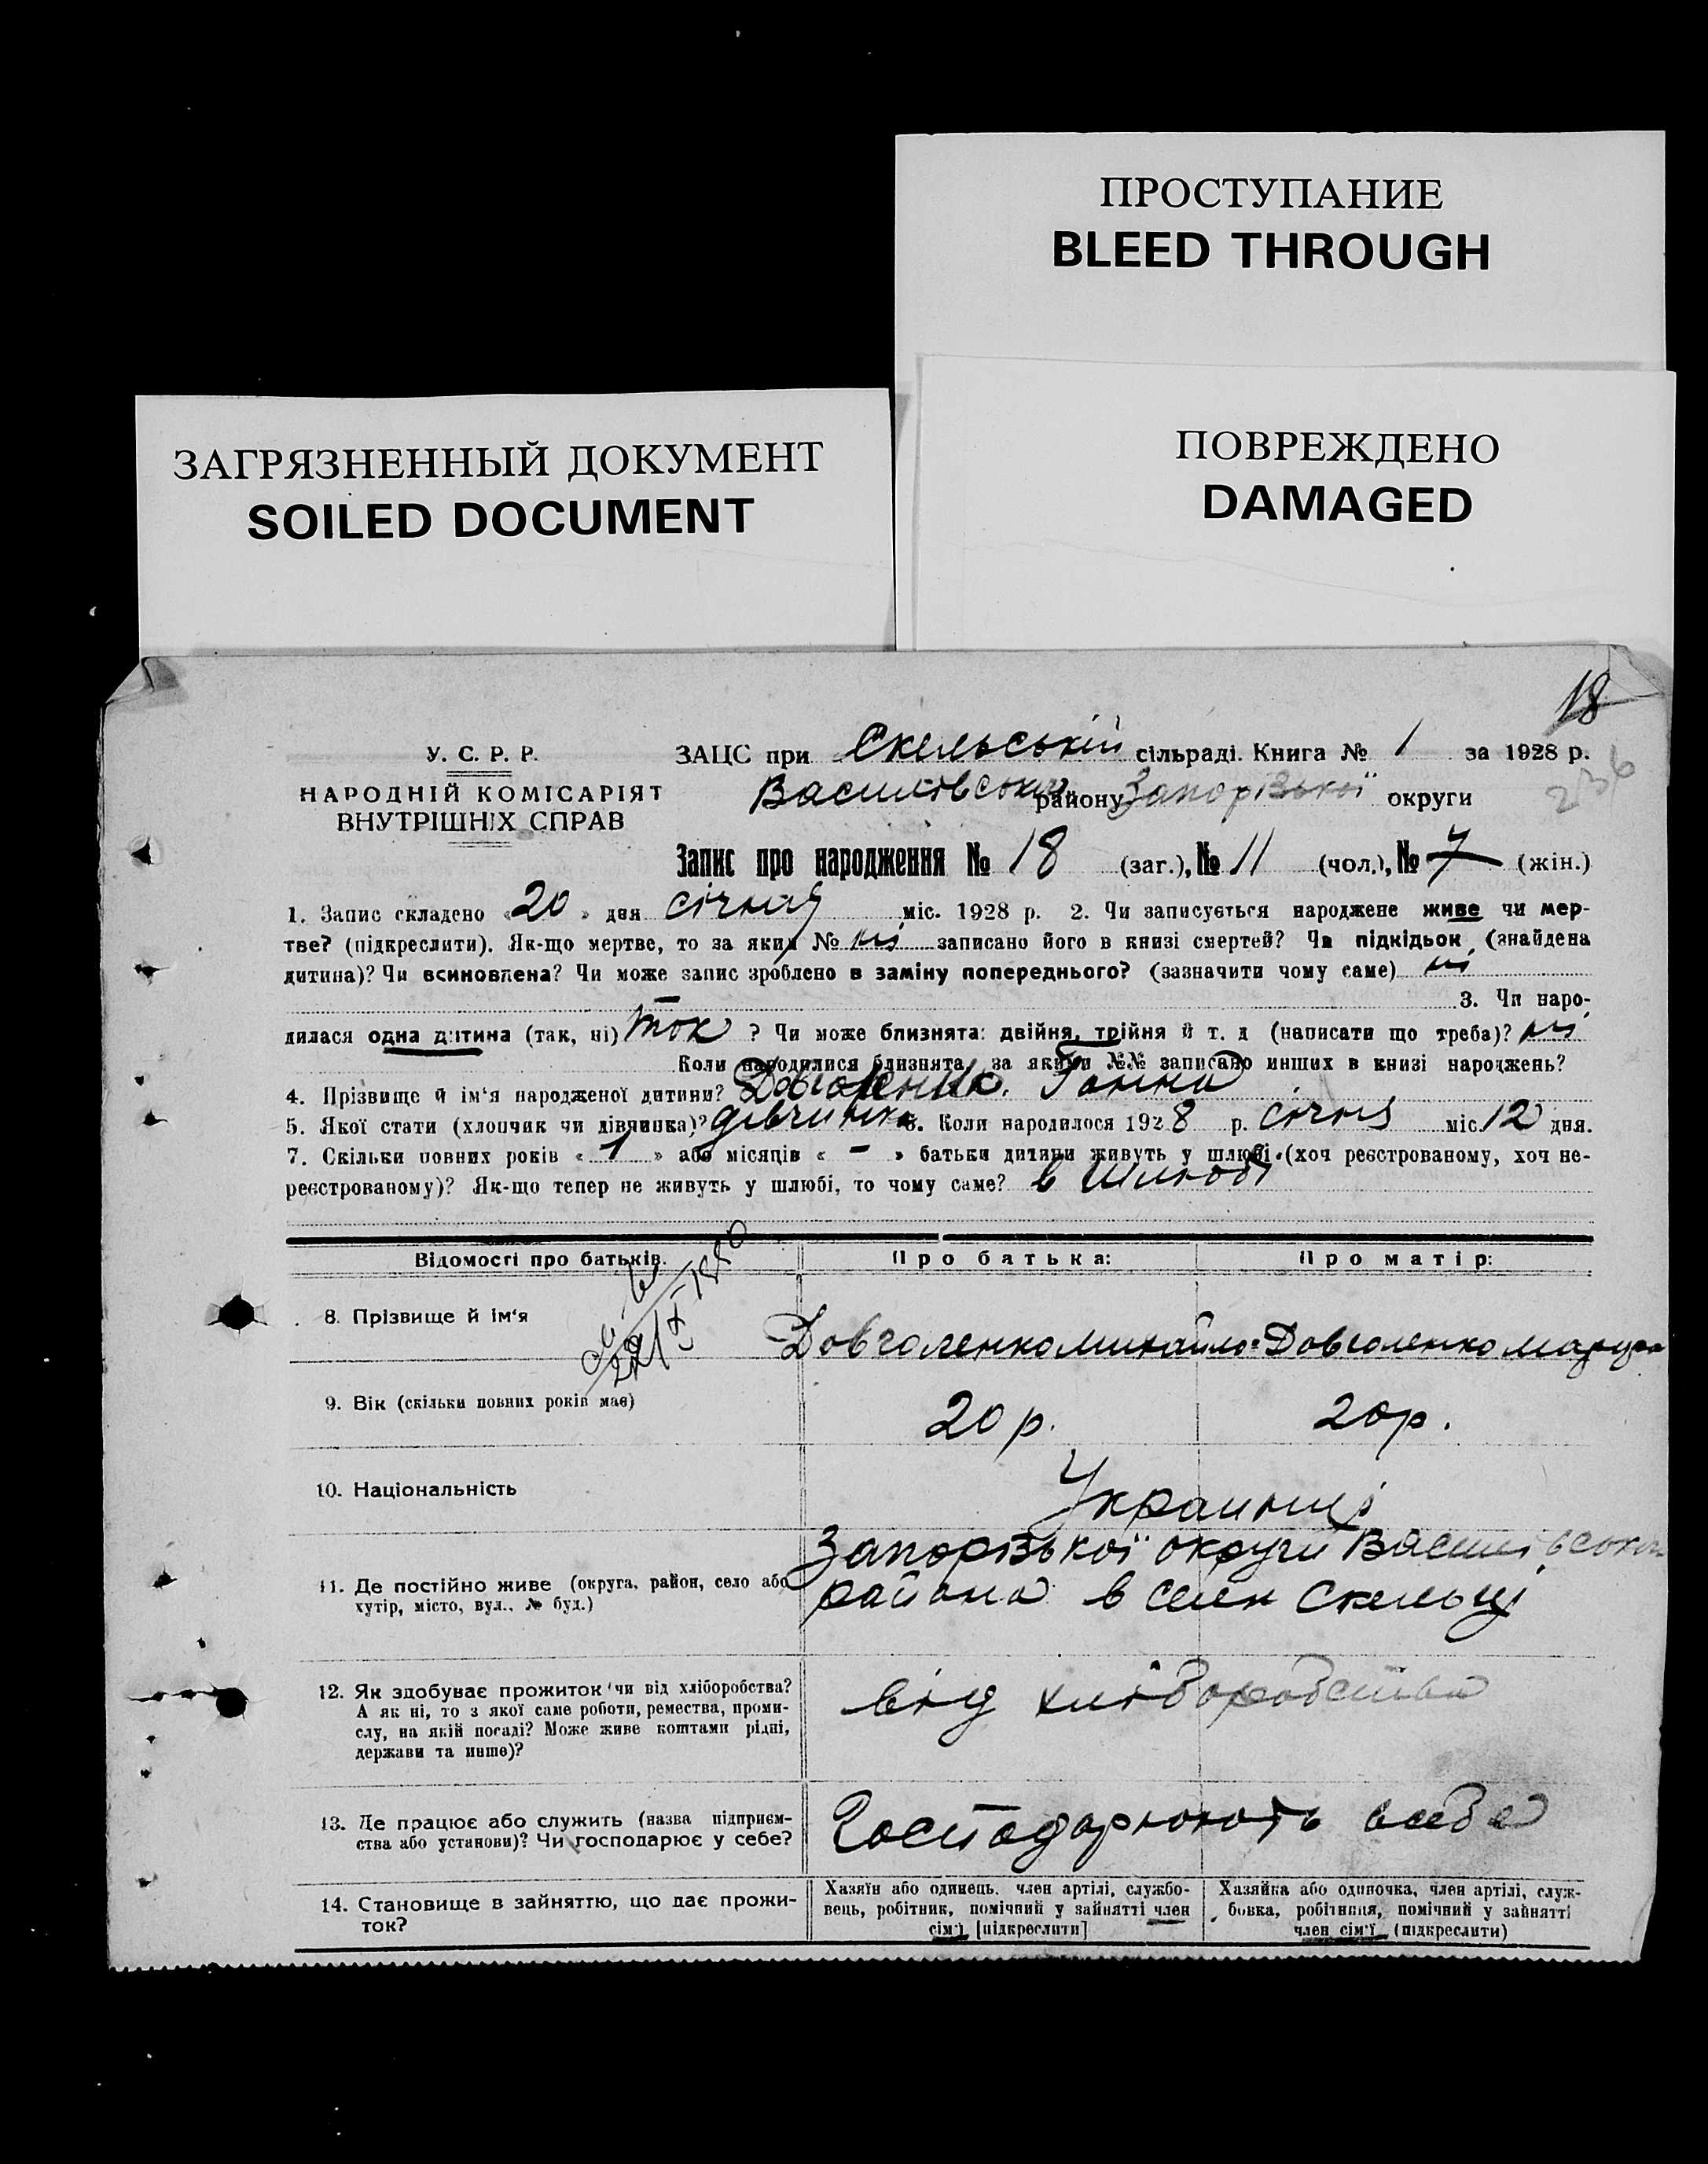 ПРОСТУПАНИЕ
BLEED THROUGH
ЗАГРЯЗНЕННЫЙ ДОКУМЕНТ
SOILED DOCUMENT
ПОВРЕЖДЕНО
DAMAGED
18
У. С. Р. Р.
НАРОДНІЙ КОМІСАРІЯТ
ВНУТРІШНІХ СПРАВ
ЗАЦС при Скельській сільраді. Книга № 1 за 1928 р.
Василівської району Запорізької округи
236
Запис про народження № 18 (заг.), № 11 (чол.), № 7 (жін.)
1. Запис складено «20» дня січня міс. 1928 р. 2. Чи записується народжене живе чи мер-
тве? (підкреслити). Як-що мертве, то за яким № ні записано його в книзі смертей? Чи підкідьок (знайдена
дитина)? Чи всиновлена? Чи може запис зроблено в заміну попереднього? (зазначити чому саме) ні
3. Чи наро-
дилася одна дитина (так, ні) так ? Чи може близнята: двійня, трійня й т. д (написати що треба)? ні
Коли народилися близнята, за якими №№ записано инших в книзі народжень?
4. Прізвище й ім'я народженої дитини? Довголенко Ганна
5. Якої стати (хлопчик чи дівчинка)? дівчинка 6. Коли народилося 1928 р. січня міс. 12 дня.
7. Скільки повних років « 1 » або місяців « - » батьки дитини живуть у шлюбі (хоч реєстрованому, хоч не-
реєстрованому)? Як-що тепер не живуть у шлюбі, то чому саме? в шлюбі
Відомості про батьків. Про батька: Про матір:
8. Прізвище й ім'я Довголенко Михайло Довголенко
9. Вік (скільки повних років має) 20 р. 20 р.
10. Національність Украинці
11. Де постійно живе (округа, район, село або
хутір, місто, вул., № буд.)
Запорізької округи Василівської
района в селі Скельці
12. Як здобуває прожиток чи від хліборобства?
А як ні, то з якої саме роботи, ремества, проми-
слу, на якій посаді? Може живе коштами рідні,
держави та инше)?
від хліборобства
13. Де працює або служить (назва підприєм-
ства або установи)? Чи господарює у себе?
Господарюють в себе
14. Становище в зайняттю, що дає прожи-
ток?
Хазяїн або одинець, член артілі, службо-
вець, робітник, помічний у зайнятті член
сім'ї [підкреслити]
Хазяйка або одиночка, член артілі, служ-
бовка, робітниця, помічний у зайнятті
член сім'ї (підкреслити)